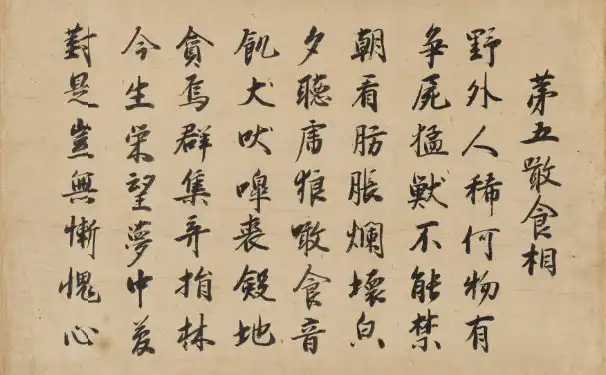 第五噉食相
野外人稀何物有
争屍猛獣不能禁
朝看肪脹爛壊白
夕聴虎狼噉食音
飢犬吠嘷喪殿地
貪烏群集弃捐林
今生栄望夢中夢
對是豈無慚愧心